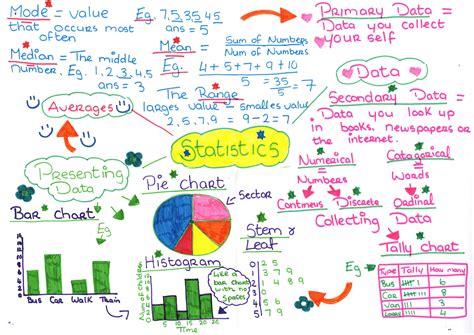 Mode = value
that occurs most
often
Eg. 7,5,35,45
ans = 5
Median = The middle
number. Eg. 1,2,3,4,5
ans = 3
Mean = Sum of Numbers
Num of Numbers
Eg: 4+5+7+9+10
5 = 35/5 = 7
The Range
larges value - smalles value
2,5,7,9 = 9-2=7
Averages
Primary Data =
Data you collect
your self
Data
Secondary Data =
Data you look up
in books, newspapers or
the internet.
Numerical
=
Numbers
Catagorical
=
Words
Contineus
Discrete
Ordinal
Collecting Data
Tally chart
Eg
Type Tally How many
Bus 6
Car 8
Van 3
Loro 4
Statistics
Presenting
Data
Bar Chart
Eg
Bus Car Walk Train
Pie chart
Sector
Histogram
Like a
bar chart
with no
spaces
5 10 15 20 25
Time
Stem &
Leaf
0 2 5
1 3 7 9
2
3 4 8 9
4 1
5